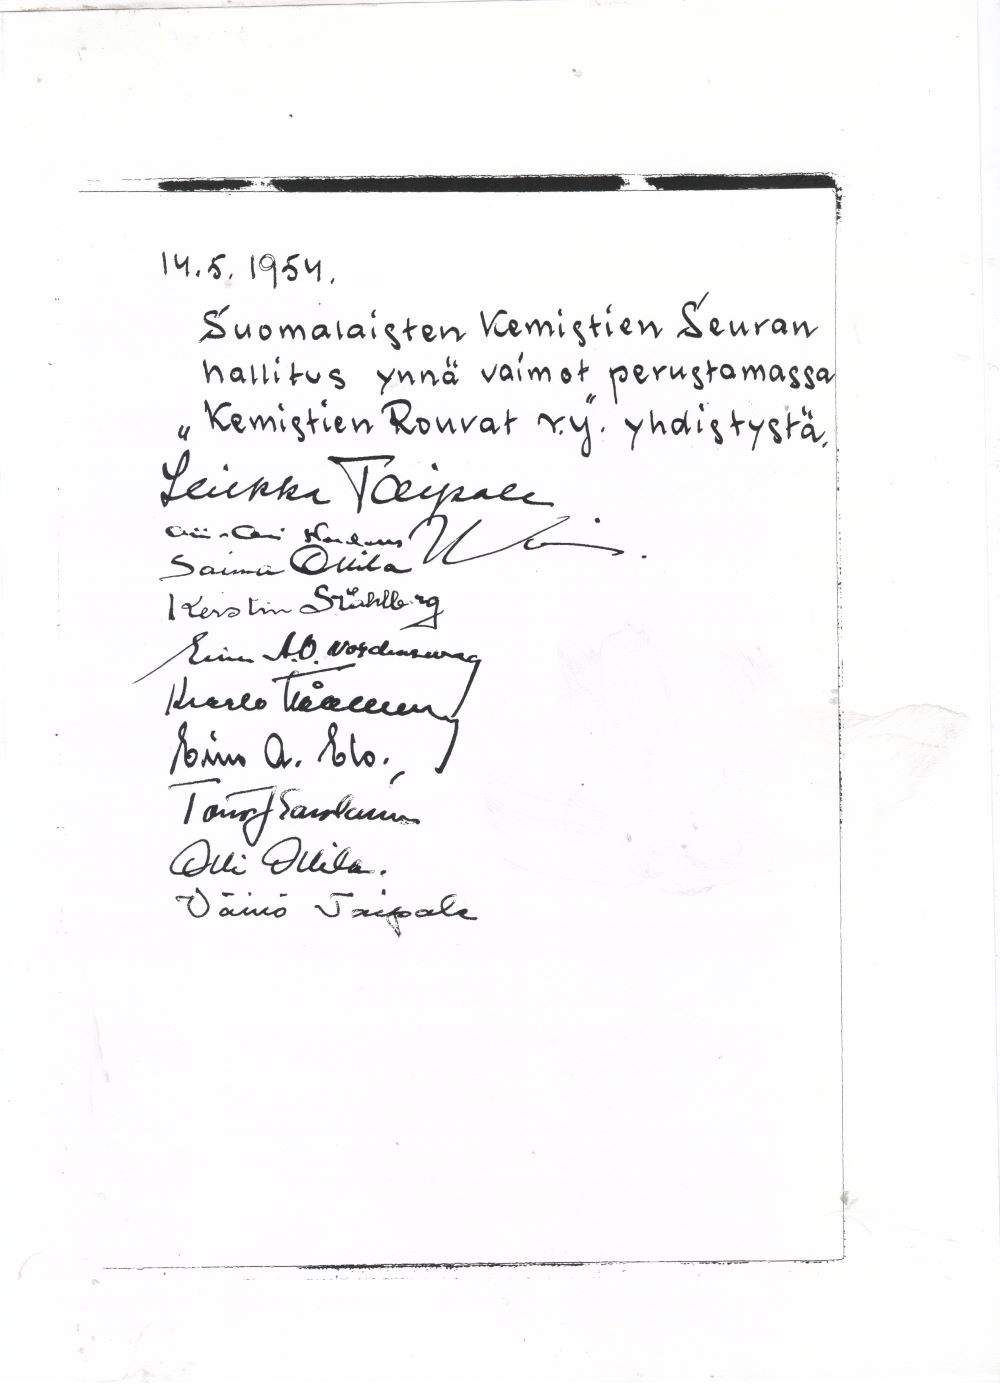 14.5. 1954.
Suomalaisten Kemistien Seuran
hallitus ynnä vaimot perustamassa
„Kemistien Rouvat r.y." yhdistystä.
Leiekka Taipale
Saima Ollila
Kerstin Ståhlberg
A.O. Nordenswag
Kaarlo
Eino A. Elo.
Olli Ollila.
Väinö Taipale